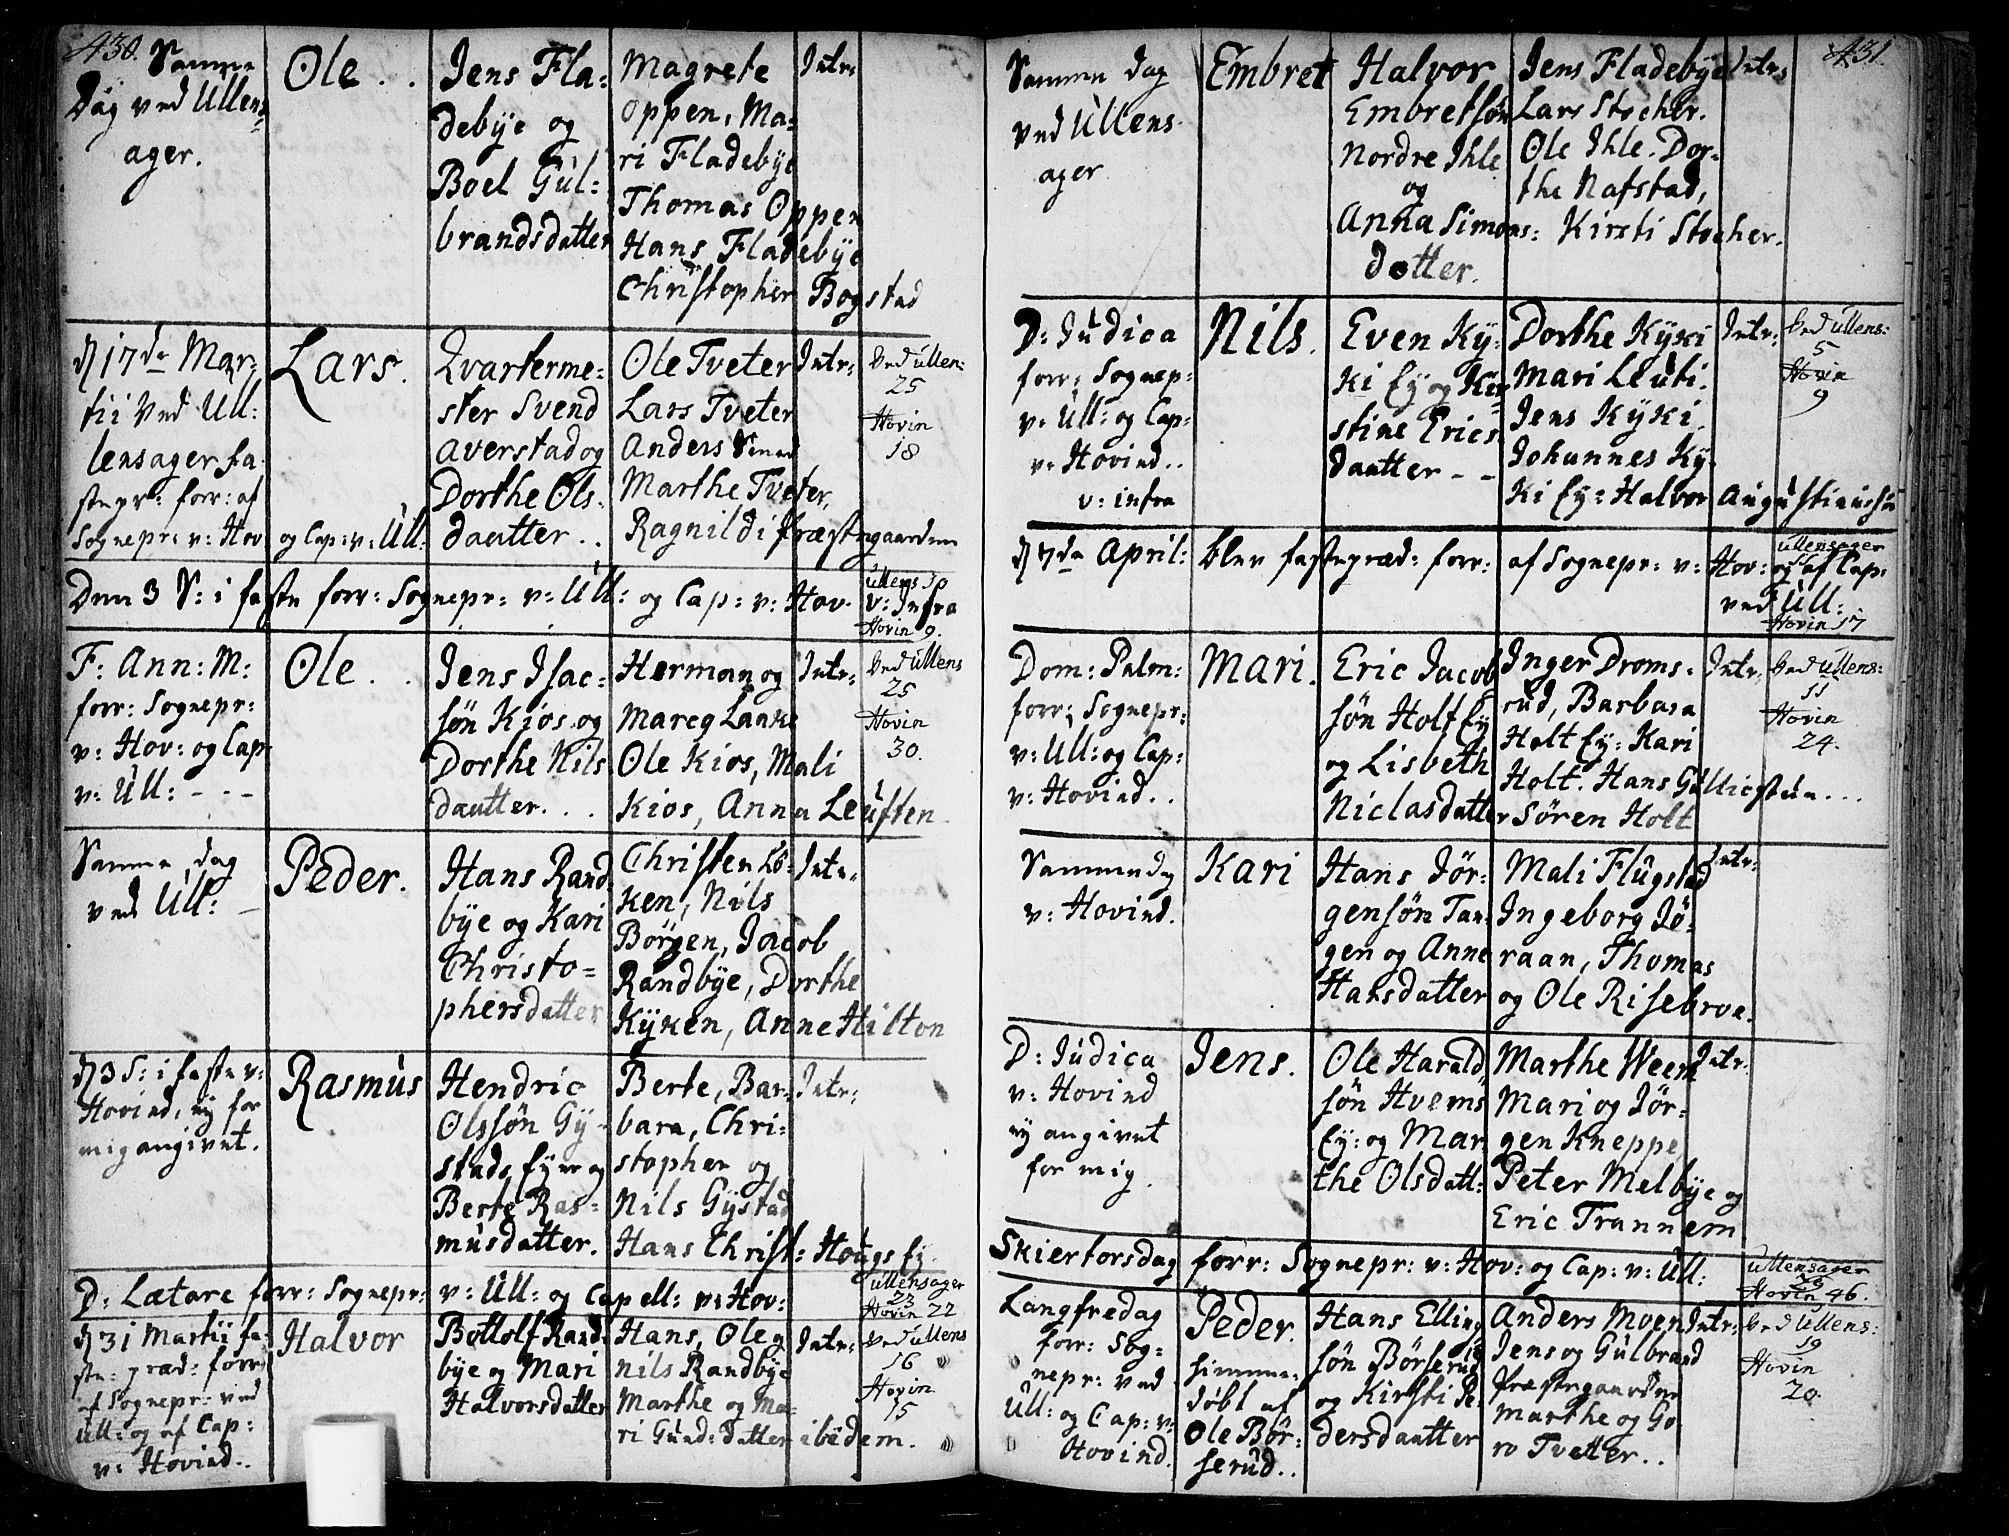 430.
Samme
Dag ved Ullens=
ager.
Ole . .
Jens Fla=
debÿe og
Boel Gul=
brandsdatter
Magrete
Oppen, Ma=
ri Fladebÿe
Thomas Oppen
Hans Fladebÿe
Christopher Bogstad
Intr:
d 17de Mar=
tii ved Ull:
lensager fa=
stepr: forr: af
Sognepr: v: Hov og Cap: v: Ull:
Lars.
Qvarterme=
ster Svend
Averstad og
Dorthe Ols=
daatter . .
Ole Tveter
Lars Tveter
Anders
Marthe Tveter,
Ragnild i Præstegaarden
Intr:
ved Ullen:
25
Hovin
18
Den 3 S: i faste forr: Sognepr: v: Ull: og Cap: v: Hov.
Ullens 10
v: Infra
Hovin 9.
F: Ann: M:
forr: Sognepr:
v: Hov: og Cap
v: Ull: - - -
Ole . .
Jens Isac=
søn Kios og
Dorthe Nils
daatter. . .
Herman og
Mareg Laake
Ole Kios, Mali
Kios, Anna Leuften
Intr:
ved Ullens
25
Hovin
30.
Samme dag
ved Ull: -
Peder.
Hans Rand
bÿe og Kari
Christo=
phersdatter
Christen Lø=
ken, Nils
Børgen, Jacob
Randbÿe, Dorthe
Kÿken, Anne Hilton
Intr.
d 3 S: i faste v:
Hovind, ej for
mig angivet.
Rasmus
Hendric
Olssøn Gÿ=
stads Ejer og
Berte Ras=
musdatter.
Berte, Bar=
bara, Chri=
stopher og
Nils Gÿstad
Hans Christ: Hougs Ej.
Intr:
D: Lætare forr: Sognepr: v: Ull: og Capell: v: Hov:
Ullensager
23
Hovin 22
d 31 Martii fa=
ste: præd: forr
af Sognepr: ved
Ull: og af Cap:
v: Hovind..
Halvor
Bottolf Rand=
bÿe og Mari
Halvorsdatter
Hans, Ole og
Nils Randbÿe
Marthe og Ma=
ri Gund: datter ibidem.
Intr:
ved Ullens
16
Hovin
15
431.
Samme dag
ved Ullens=
ager
Embret
Halvor
Embretsøn
Nordre Ihle
og
Anna Simons=
datter.
Jens Fladebÿe
Lars Stocher.
Ole Ihle. Dor=
the Nafstad,
Kirsti Stocher.
Intr:
D: Judica
forr: Sognep:
v: Ull: og Cap:
v: Hovind..
v: infra
Nils.
Even Kÿ=
ki Ej og Kir=
stine Erics
daatter - -
Dorthe Kÿki
Mari Leuti.
Jens Kÿki.
Johannes Kÿ=
ki Ej: Halvor Augustinussøn
Intr:
ved Ullens:
5
Hovin
9
d 7de April: blev fastepræd: forr: af Sognepr: v: Hov: og af Cap:
ved Ull:
Ullensager
Hovin 17
Dom: Palm:
forr: Sognepr:
v: Ull: og Cap:
v: Hovind..
Mari.
Eric Jacob
søn Holt Ej
og Lisbeth
Niclasdatter
Inger Droms=
rud, Barbara
Holt Ej: Kari
Holt. Hans Gullicstun...
Søren Holt
Intr.
ved Ullens:
11
Hovin
24.
Samme Dag
v: Hovind.
Kari
Hans Jør=
gensøn Tan=
gen og Anne
Hansdatter
Mali Flugstad
Ingeborg Jø=
raan, Thomas
og Ole Risebroe.
Intr:
D: Judica
v: Hovind
ej angivet
for mig.
Jens.
Ole Harald
søn Hvems
Ej: og Mar
the Olsdatt:
Marthe Weem
Mari og Jør=
gen Kneppe,
Peter Melbÿe og
Eric Trannem
Intr.
Skiertorsdag forr: Sognepr: v: Hov: og Cap: v: Ull:
Ullensager
28
Hovin 46.
Langfredag
forr: Sog=
nepr: ved
Ull: og Cap: v:
Hovind.
Peder.
himme=
døbt af
Ole Bør=
serud..
Hans Elling
søn Børserud
og Kirsti Pe
dersdaatter
Anders Moen
Jens og Gulbrand
Præstegaarden
Marthe og Go
ro Tvetter..
Intr:
ved Ullens:
19
Hovin
20.